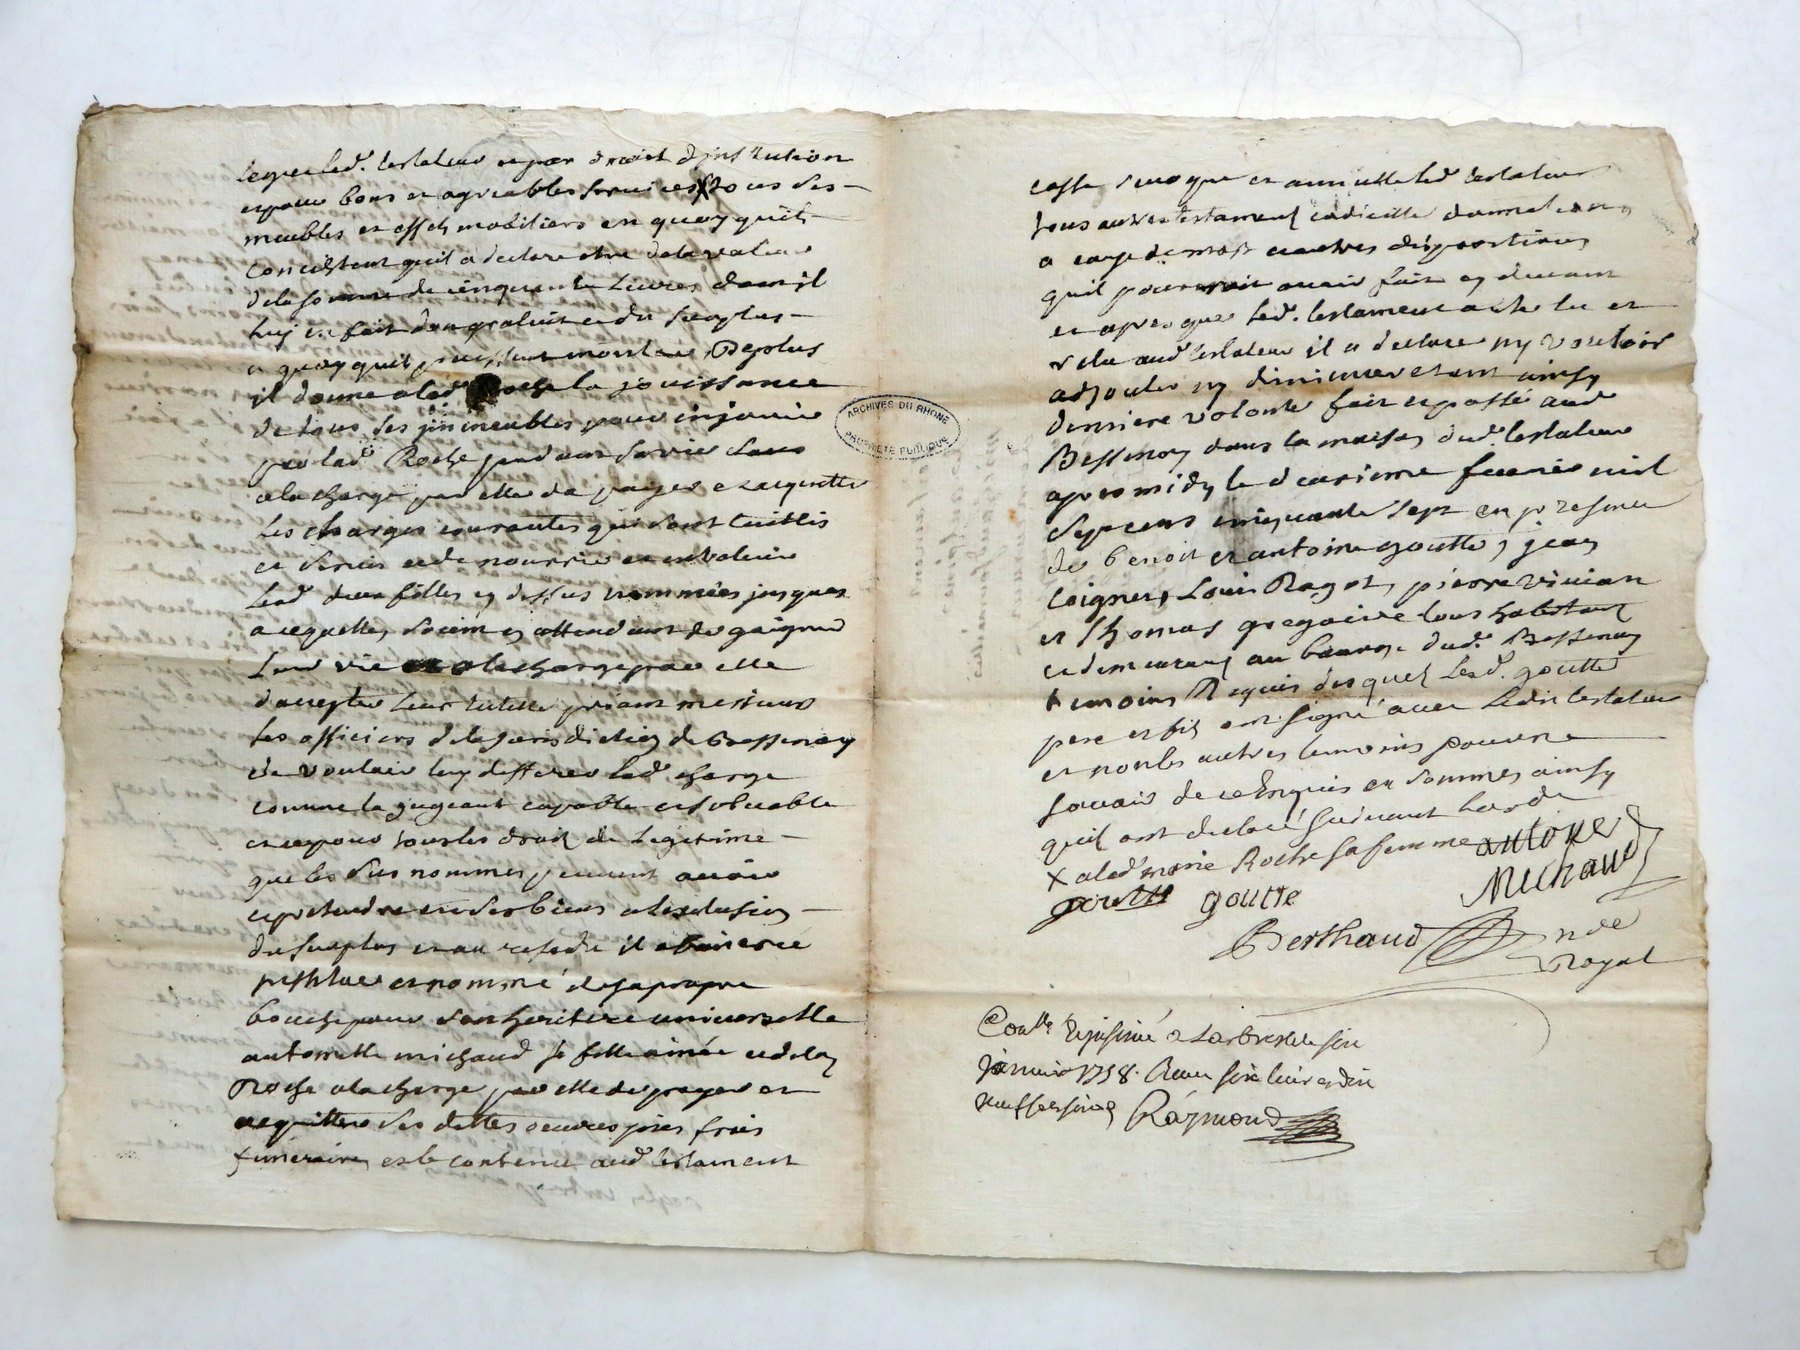 legue led. testateur et par droit d'institution
et pour bons et agreables services X tous ses
meubles et effets mobiliers en quoy quils
consistent quil a declaré etre de la valeur
de la somme de cinquante Livres dont il
luy en fait don gratuit et du surplus
a quoy quil puissent monter, De plus
il donne a lad. Roche la jouissance
de tous ses jmmeubles pour en jouir
par lad. Roche pendant sa vie sans
a la charge par elle de payer et acquitter
les charges courantes qui sont cuillis
et servis et de nourrir et entretenir
Lesd. deux filles cy dessus nommées jusques
a ce quelles soient en attendant de gaigner
Leur vie et a la charge par elle
d'accepter leur tutelle priant messieurs
les officiers de la jurisdiction de Bessenay
de vouloir luy defferer lad. charge
comme la jugeant capable et solvable
et ce pour tous les droits de Legitime
que les sus nommes peuvent avoir
et pretendre en ses biens a lexclusion
du surplus et au residu il a fait et créé
institué et nommé de sa propre
bouche pour son heritiere universelle
antoinette michaud sa fille ainée et de la
Roche a la charge par elle de payer et
acquitter ses dettes oeuvres pies frais
funeraires et le contenu aud. testament
casse revoque et annulle led. testateur
tous autres testaments codicille donnations
a cause de mort et autres dispositions
quil pourroit avoir fait cy devant
et apres que led. testament a été lu et
relu aud. testateur il a declaré ny vouloir
adjouter ny diminuer etant ainsy
derniere volonté fait et passé aud.
Bessenay dans la maison dud. testateur
apres midy le deuxieme fevrier mil
sept cens cinquante sept en presence
de benoit et antoine goutte, jean
Coignet, Louis Ragot, pierre vivian
et thomas gregoire tous habitants
et demeurants au bourg dud. Bessenay
temoins Requis desquels lesd. goutte
pere et fils ont signé avec Ledit testateur
et non les autres temoins pour ne
savoir de ce Enquis et sommes ainsy
quils ont declaré suivant lorde
X a lad. marie Roche sa femme antoine
Michaud
goutte goutte
Berthaud nre
Royal
Conlle et jnsinué a Larbresle le six
janvier 1758. Recu six livres dix
neuf sols Raymond